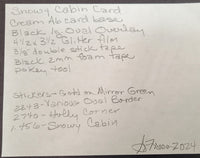 Snowy Cabin Card
Cream A6 card base
Black Oval Overlay
4 1/2 x 3 1/2 Glitter film
3/8" double stick tape
Black 2mm foam tape
Pokey tool
Stickers - Gold on Mirror Green
Various Oval Border
2790 - Holly Corner
1756 - Snowy Cabin
2024